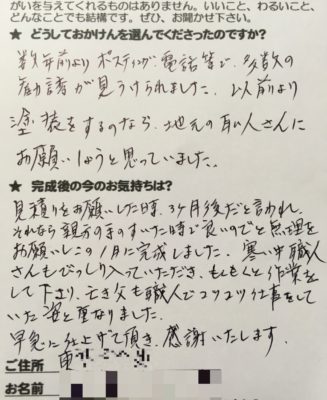 がいを与えてくれるものはありません。いいこと、わるいこと、
どんなことでも結構です。ぜひ、お聞かせ下さい。
★ どうしておかけんを選んでくださったのですか?
数年前よりポスティング、電話等で、多数の
勧誘が見うけられました。以前より
塗装をするのなら、地元の職人さんに
お願いしようと思っていました。
★ 完成後の今のお気持ちは?
見積りをお願いした時、3ヶ月後だと言われ、
それなら親方の手のすいた時で良いのでと無理を
お願いしこの1月に完成しました。寒い中職人
さんもびっしり入っていただき、もくもくと作業を
して下さり、亡き父も職人でコツコツ仕事をして
いた姿と重なりました。
早急に仕上げて頂き、感謝いたします。
ご住所
お名前